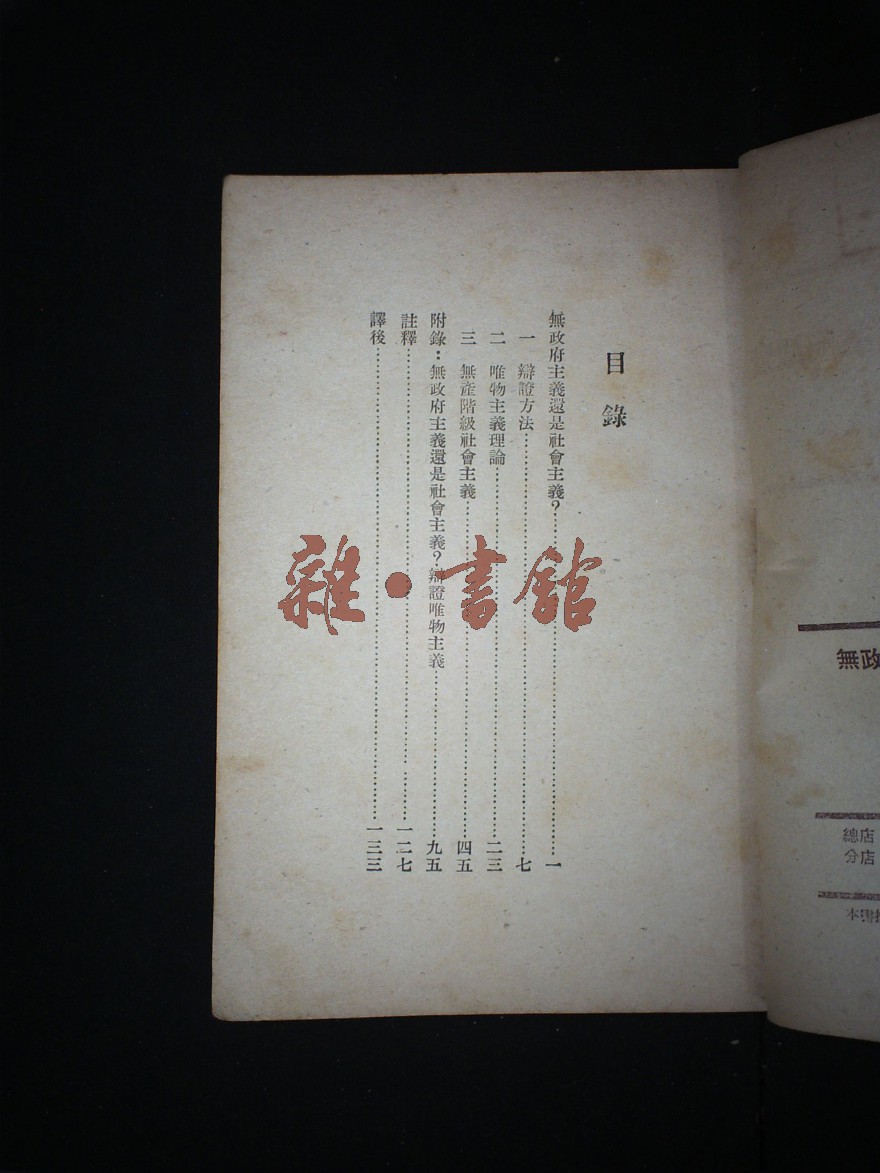 目錄
無政府主義還是社會主義？……一
一 辯證方法……七
二 唯物主義理論……二三
三 無產階級社會主義……四五
附錄：無政府主義還是社會主義？辯證唯物主義……九五
註釋……一二七
譯後……一三三
雜·書館
無政
總店
分店
本書